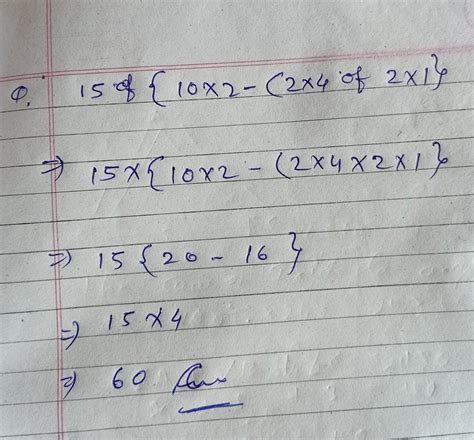 Q. 15 of { 10×2 - (2×4 of 2×1}
⇒ 15×{10×2 - (2×4×2×1}
⇒ 15 {20 - 16 }
⇒ 15 ×4
⇒ 60 Ans